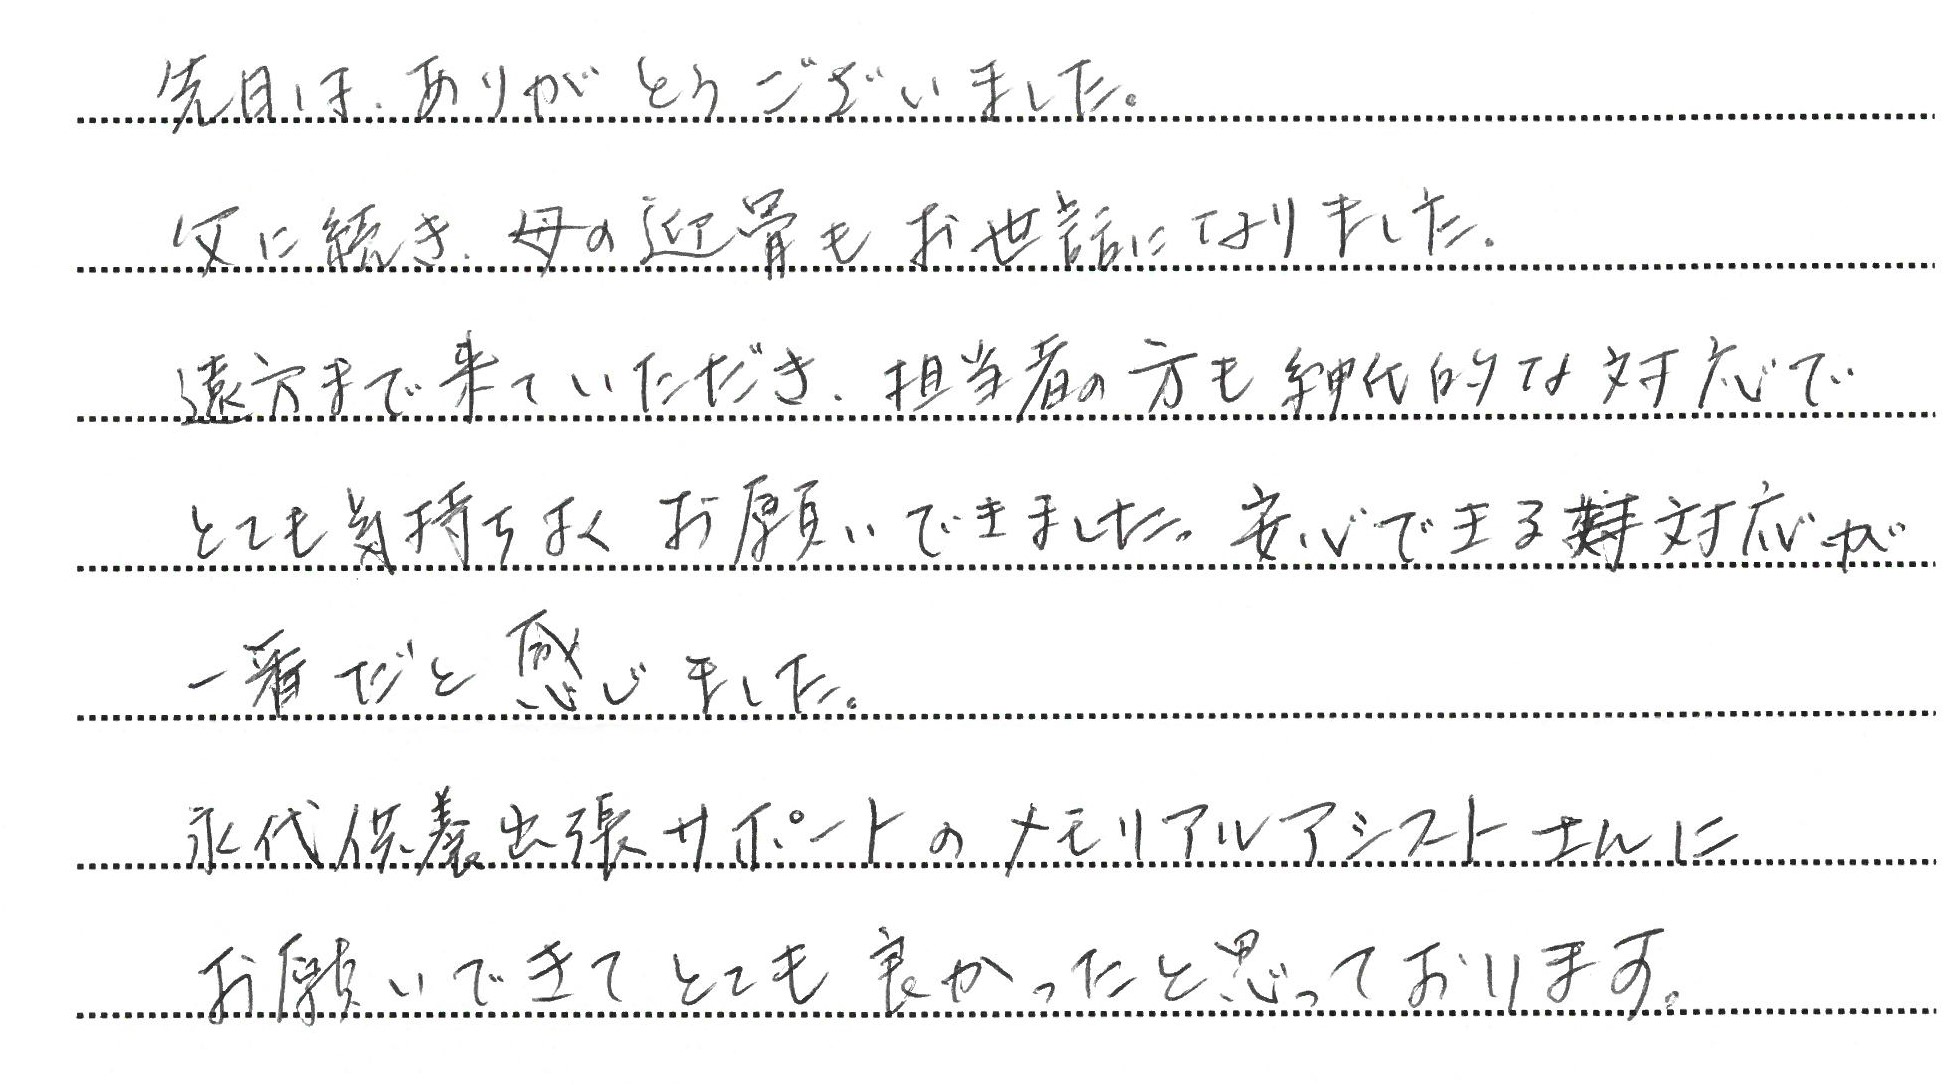 先日は、ありがとうございました。
父に続き、母の迎骨もお世話になりました。
遠方まで来ていただき、担当者の方も紳代的な対応で
とても気持ちよくお願いできました。安心できる対応が
一番だと感じました。
永代供養出張サポートのメモリアルアシストさんに
お願いできてとても良かったと思っております。